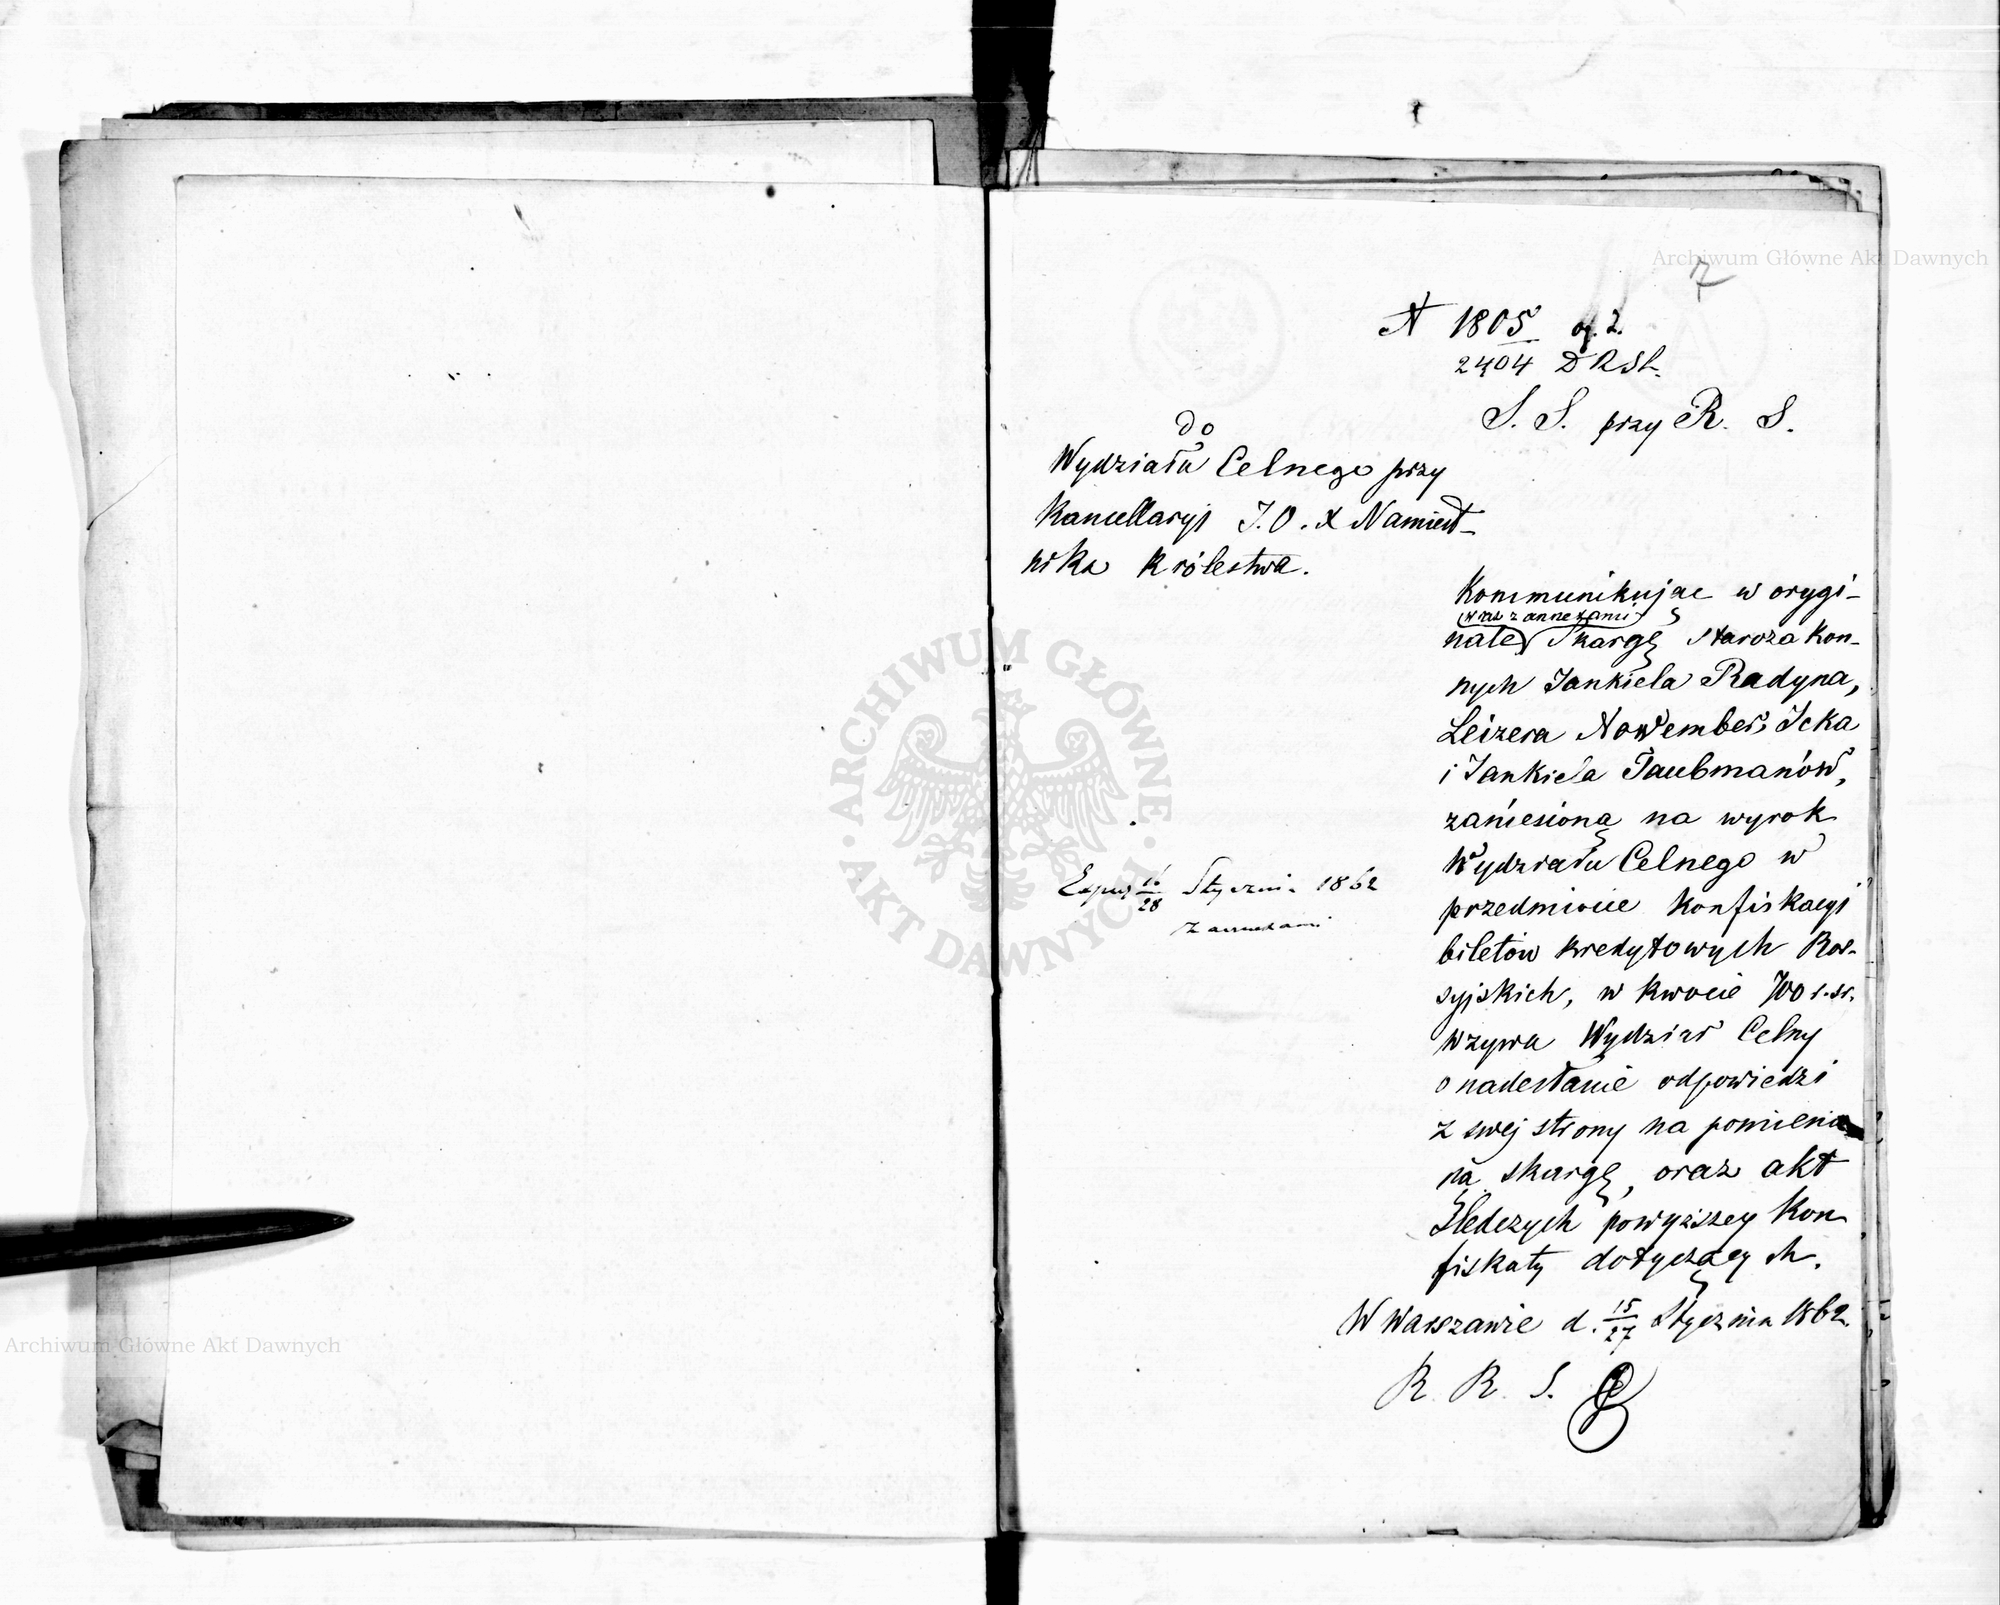 Archiwum Główne Akt Dawnych
7
N 1805
2404 DRSt.
S. S. przy R. S.
do
Wydziału Celnego przy
Kancellaryi J. O. X Namiest-
nika Królestwa.
Kommunikując w orygi-
wraz z annexami
nale skargę starozakon-
nych Jankiela Radyna,
Leizera Nowember, Icka
i Jankiela Taubmanów,
zaniesioną na wyrok
Wydziału Celnego w
przedmiocie konfiskacyi
biletów kredytowych Ros-
syjskich, w kwocie 700 r. sr.
wzywa Wydział Celny
o nadesłanie odpowiedzi
z swej strony na pomienio
ną skargę, oraz akt
śledczych powyższey kon
fiskaty dotyczących.
W Warszawie d. 15/27 Stycznia 1862.
R. R. S.
Exp. 16/28 Stycznia 1862
z annexami
ARCHIWUM GŁÓWNE AKT DAWNYCH
Archiwum Główne Akt Dawnych